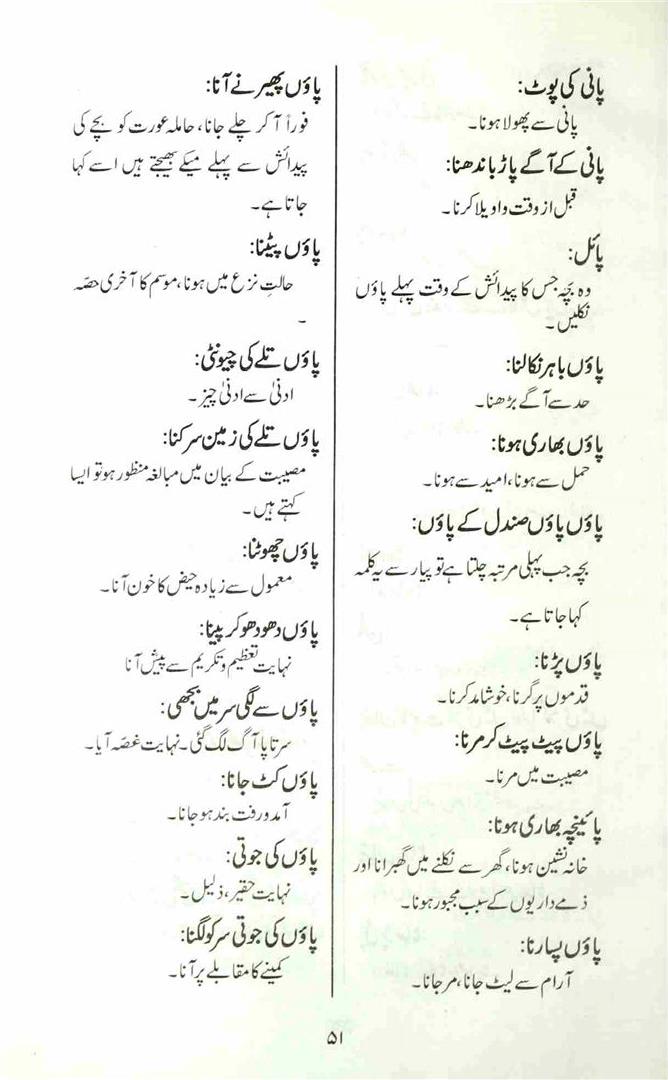 پانی کی پوٹ:
پانی سے پھولا ہونا۔
پانی کے آگے پاڑ باندھنا:
قبل از وقت واویلا کرنا۔
پائل:
وہ بچّہ جس کا پیدائش کے وقت پہلے پاؤں
نکلیں۔
پاؤں باہر نکالنا:
حد سے آگے بڑھنا۔
پاؤں بھاری ہونا:
حمل سے ہونا، امید سے ہونا۔
پاؤں پاؤں صندل کے پاؤں:
بچہ جب پہلی مرتبہ چلتا ہے تو پیار سے یہ کلمہ
کہا جاتا ہے۔
پاؤں پڑنا:
قدموں پر گرنا، خوشامد کرنا۔
پاؤں پیٹ پیٹ کر مرنا:
مصیبت میں مرنا۔
پائینچہ بھاری ہونا:
خانہ نشین ہونا، گھر سے نکلنے میں گھبرانا اور
ذمے داریوں کے سبب مجبور ہونا۔
پاؤں پسارنا:
آرام سے لیٹ جانا، مر جانا۔
پاؤں پھیرنے آنا:
فوراً آ کر چلے جانا، حاملہ عورت کو بچے کی
پیدائش سے پہلے میکے بھیجتے ہیں اسے کہا
جاتا ہے۔
پاؤں پیٹنا:
حالتِ نزع میں ہونا، موسم کا آخری حصّہ
۔
پاؤں تلے کی چیونٹی:
ادنیٰ سے ادنیٰ چیز۔
پاؤں تلے کی زمین سرکنا:
مصیبت کے بیان میں مبالغہ منظور ہو تو ایسا
کہتے ہیں۔
پاؤں چھوٹنا:
معمول سے زیادہ حیض کا خون آنا۔
پاؤں دھو دھو کر پینا:
نہایت تعظیم و تکریم سے پیش آنا
پاؤں سے لگی سر میں بجھی:
سرتاپا آگ لگ گئی۔ نہایت غصّہ آیا۔
پاؤں کٹ جانا:
آمد و رفت بند ہو جانا۔
پاؤں کی جوتی:
نہایت حقیر، ذلیل۔
پاؤں کی جوتی سر کو لگنا:
کمینے کا مقابلے پر آنا۔
۵۱